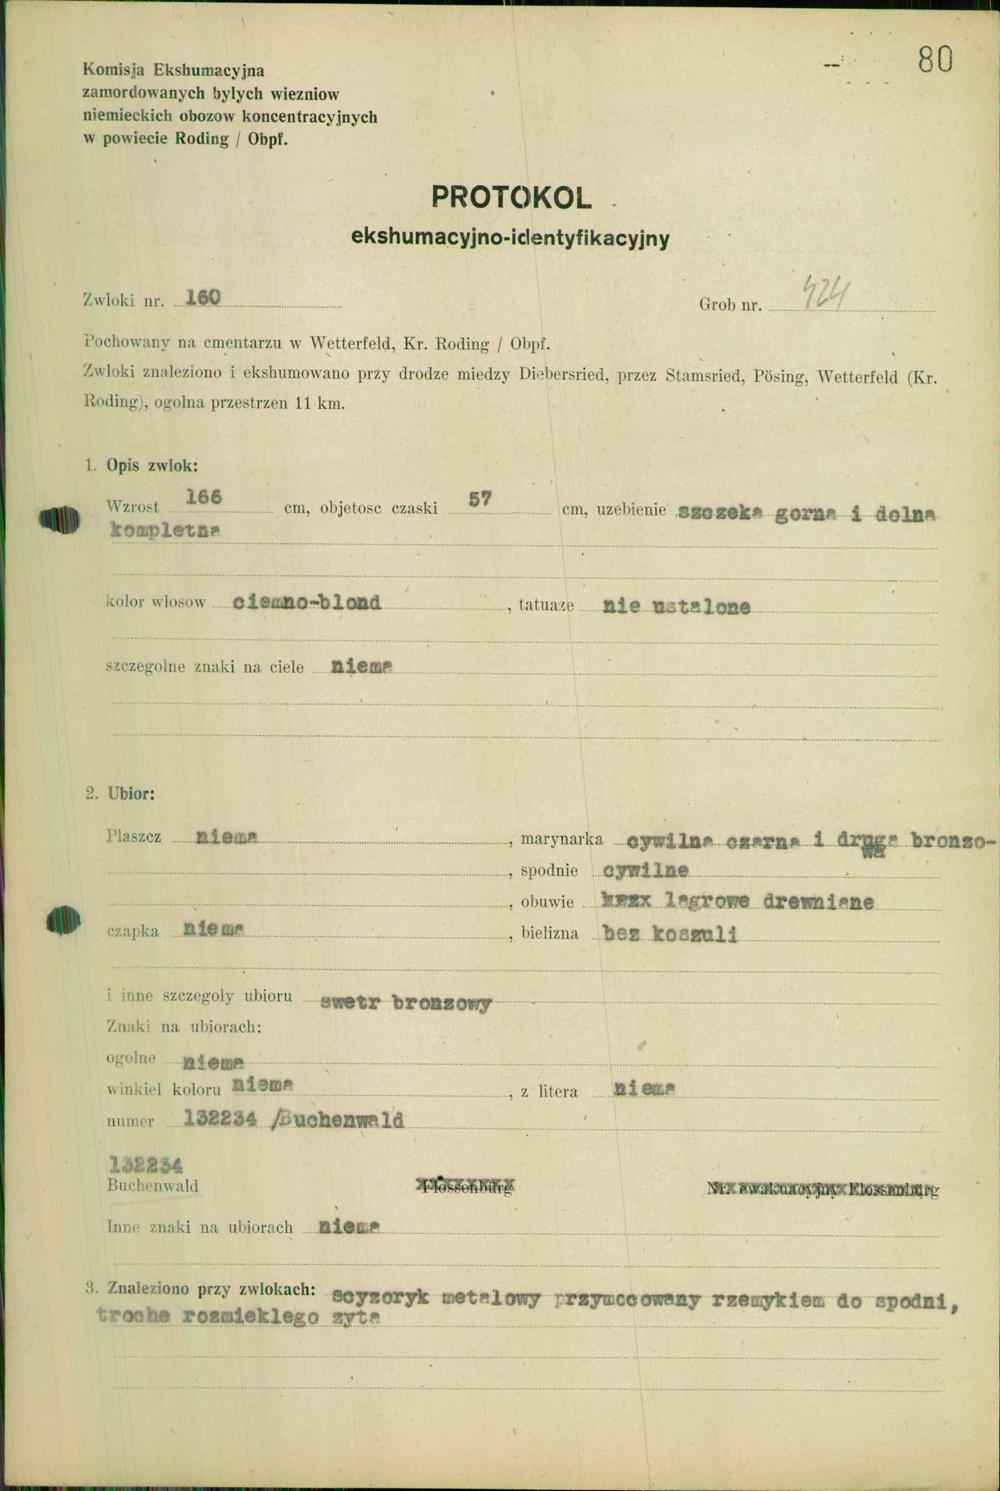 80
Komisja Ekshumacyjna
zamordowanych bylych wiezniow
niemieckich obozow koncentracyjnych
w powiecie Roding / Obpf.
PROTOKOL
ekshumacyjno-identyfikacyjny
Zwloki nr. 160 Grob nr. 424
Pochowany na cmentarzu w Wetterfeld, Kr. Roding / Obpf.
Zwloki znaleziono i ekshumowano przy drodze miedzy Diebersried, przez Stamsried, Pösing, Wetterfeld (Kr.
Roding), ogolna przestrzen 11 km.
1. Opis zwlok:
Wzrost 166 cm, objetosc czaski 57 cm, uzebienie szczeka gorna i dolna
kompletna
kolor wlosow ciemno-blond , tatuaze nie ustalone
szczegolne znaki na ciele niema
2. Ubior:
Plaszcz niema , marynarka cywilna czarna i druga bronzo-
wa
, spodnie cywilne
, obuwie lagrowe drewniane
czapka niema , bielizna bez koszuli
i inne szczegoly ubioru swetr bronzowy
Znaki na ubiorach:
ogolne niema
winkiel koloru niema , z litera niema
numer 132234 /Buchenwald
132234
Buchenwald Flossenburg Nr. ewakuacyjny Flossenburg
Inne znaki na ubiorach niema
3. Znaleziono przy zwlokach: scyzoryk metalowy przymccowany rzemykiem do spodni,
troche rozmieklego zyta